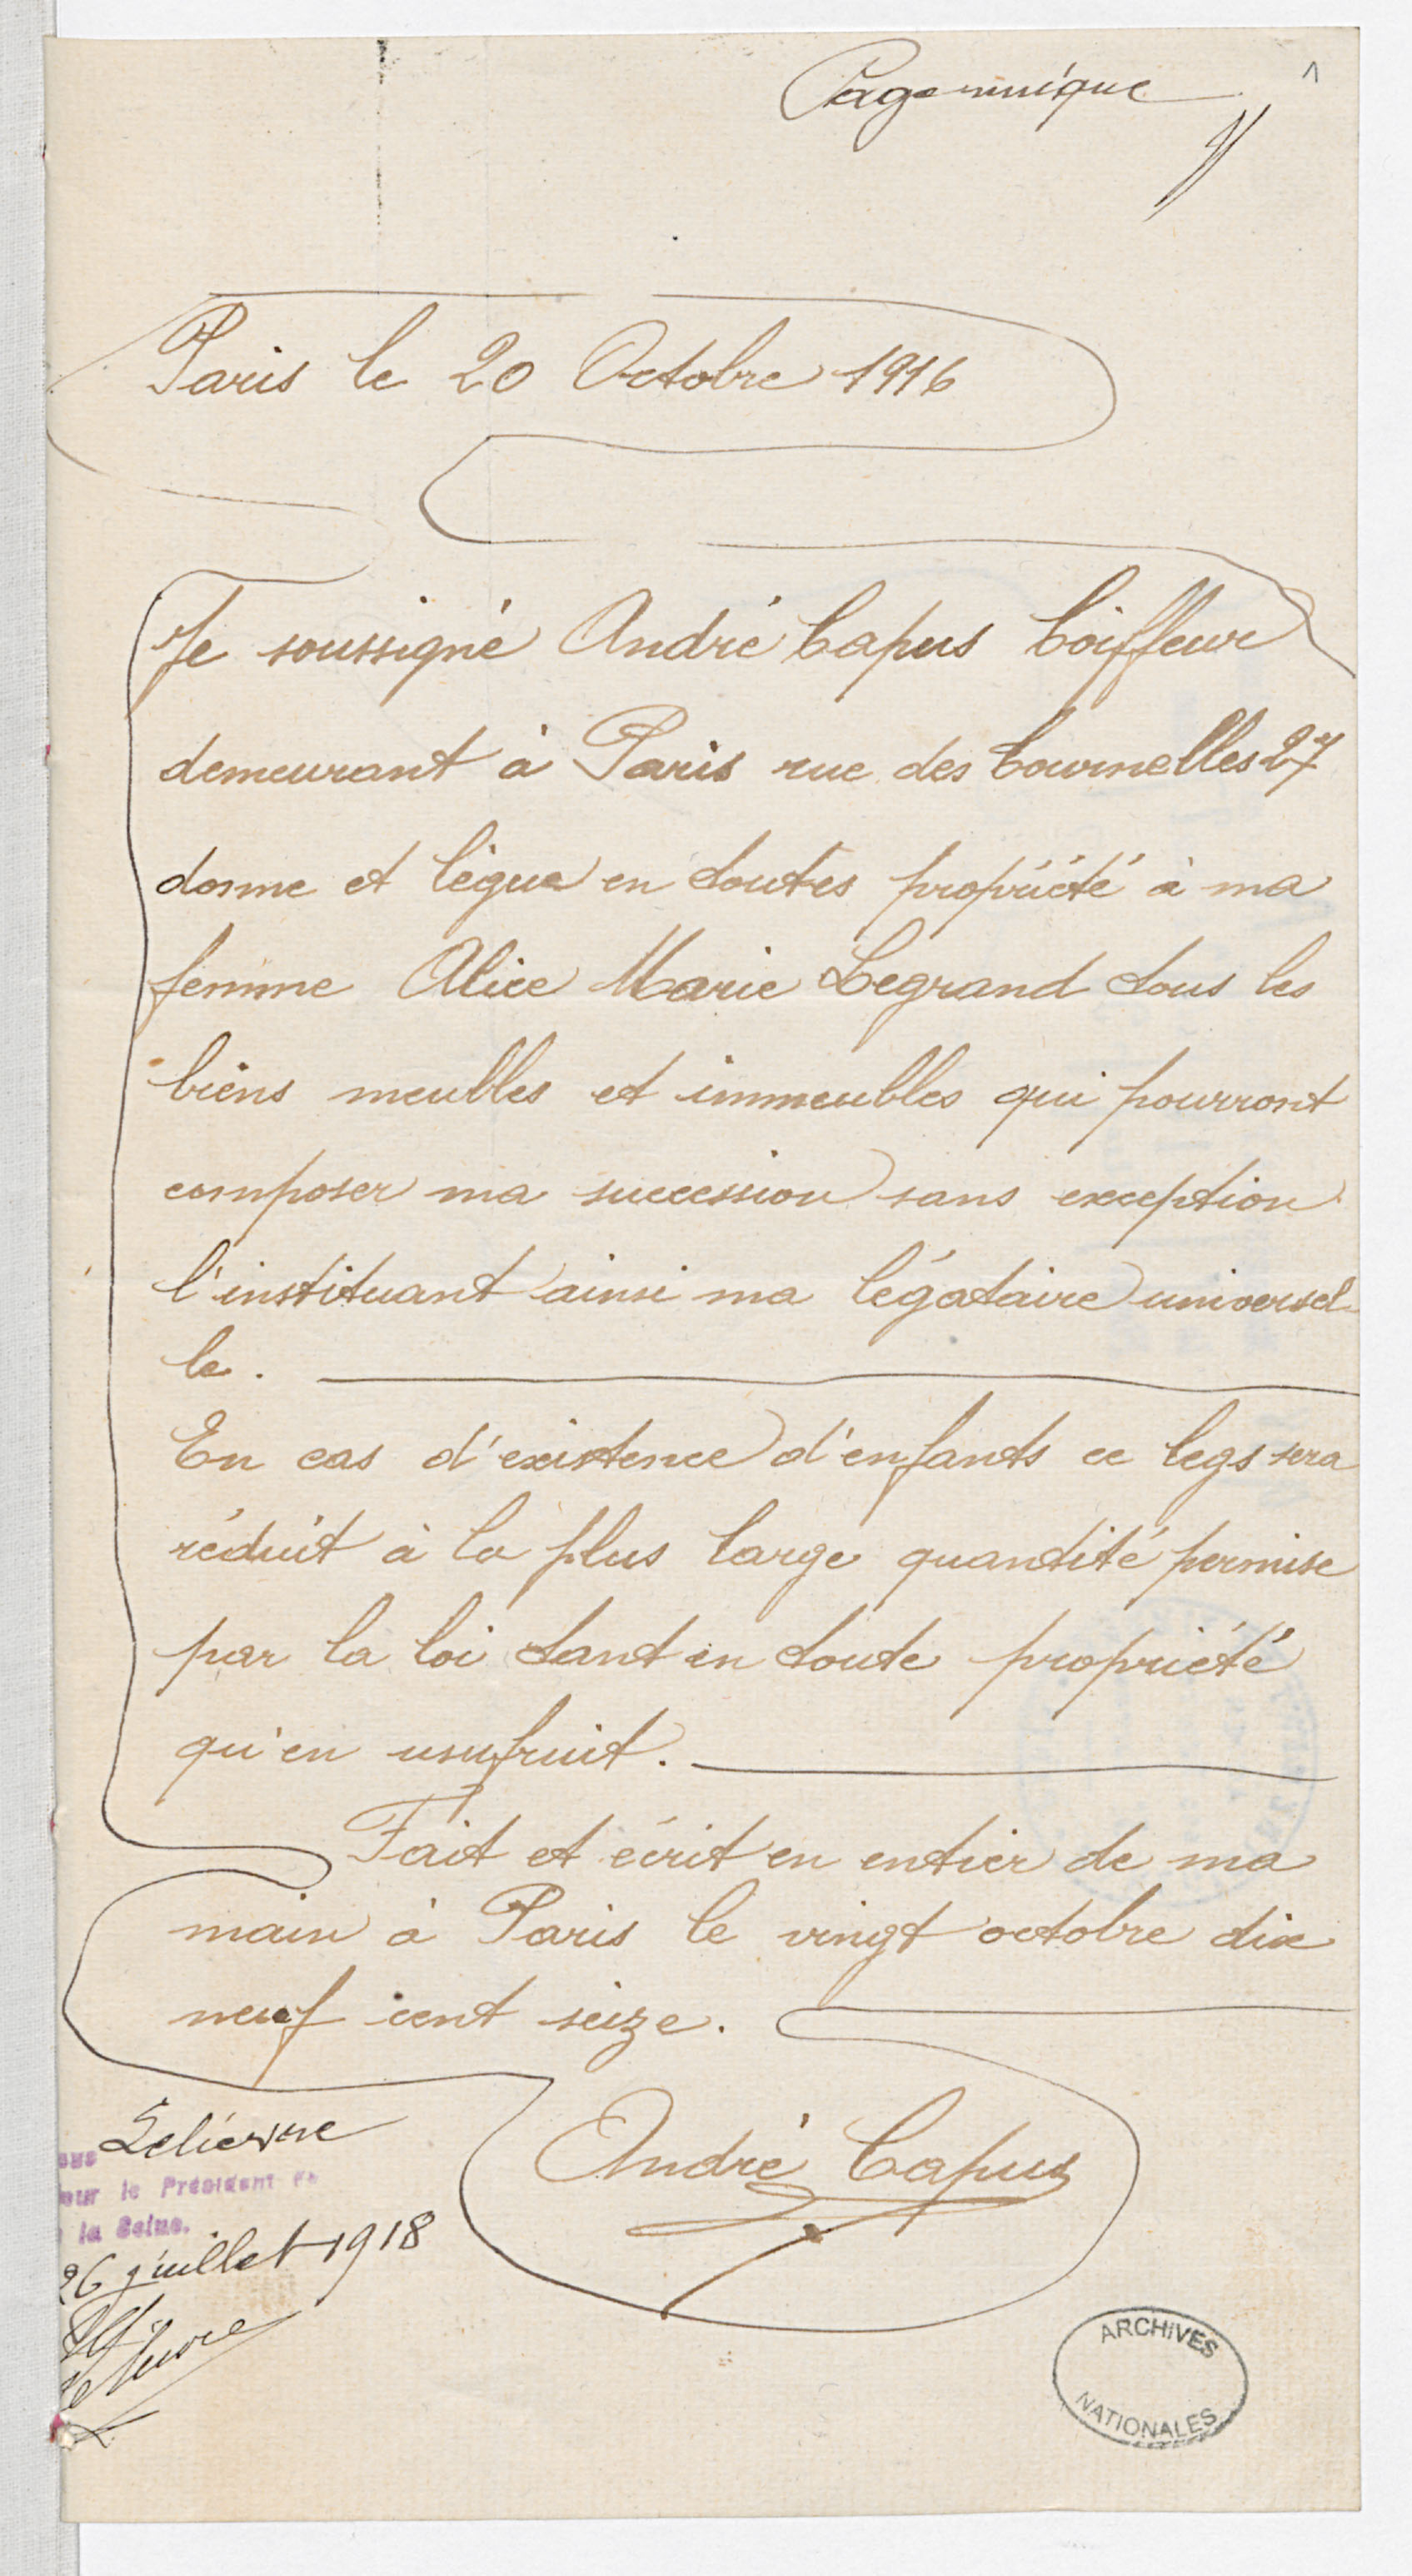 Page unique
1
Paris le 20 Octobre 1916
Je soussigné André Capus Coiffeur
demeurant à Paris rue des Tournelles 27
donne et lègue en toutes propriété à ma
femme Alice Marie Legrand tous les
biens meubles et immeubles qui pourront
composer ma succession sans exception
l'instituant ainsi ma légataire universel-
le.
En cas d'existence d'enfants ce legs sera
réduit à la plus large quantité permise
par la loi tant en toute propriété
qu'en usufruit.
Fait et écrit en entier de ma
main à Paris le vingt octobre dix
neuf cent seize.
André Capus
le Président
la Seine.
26 juillet 1918
ARCHIVES
NATIONALES